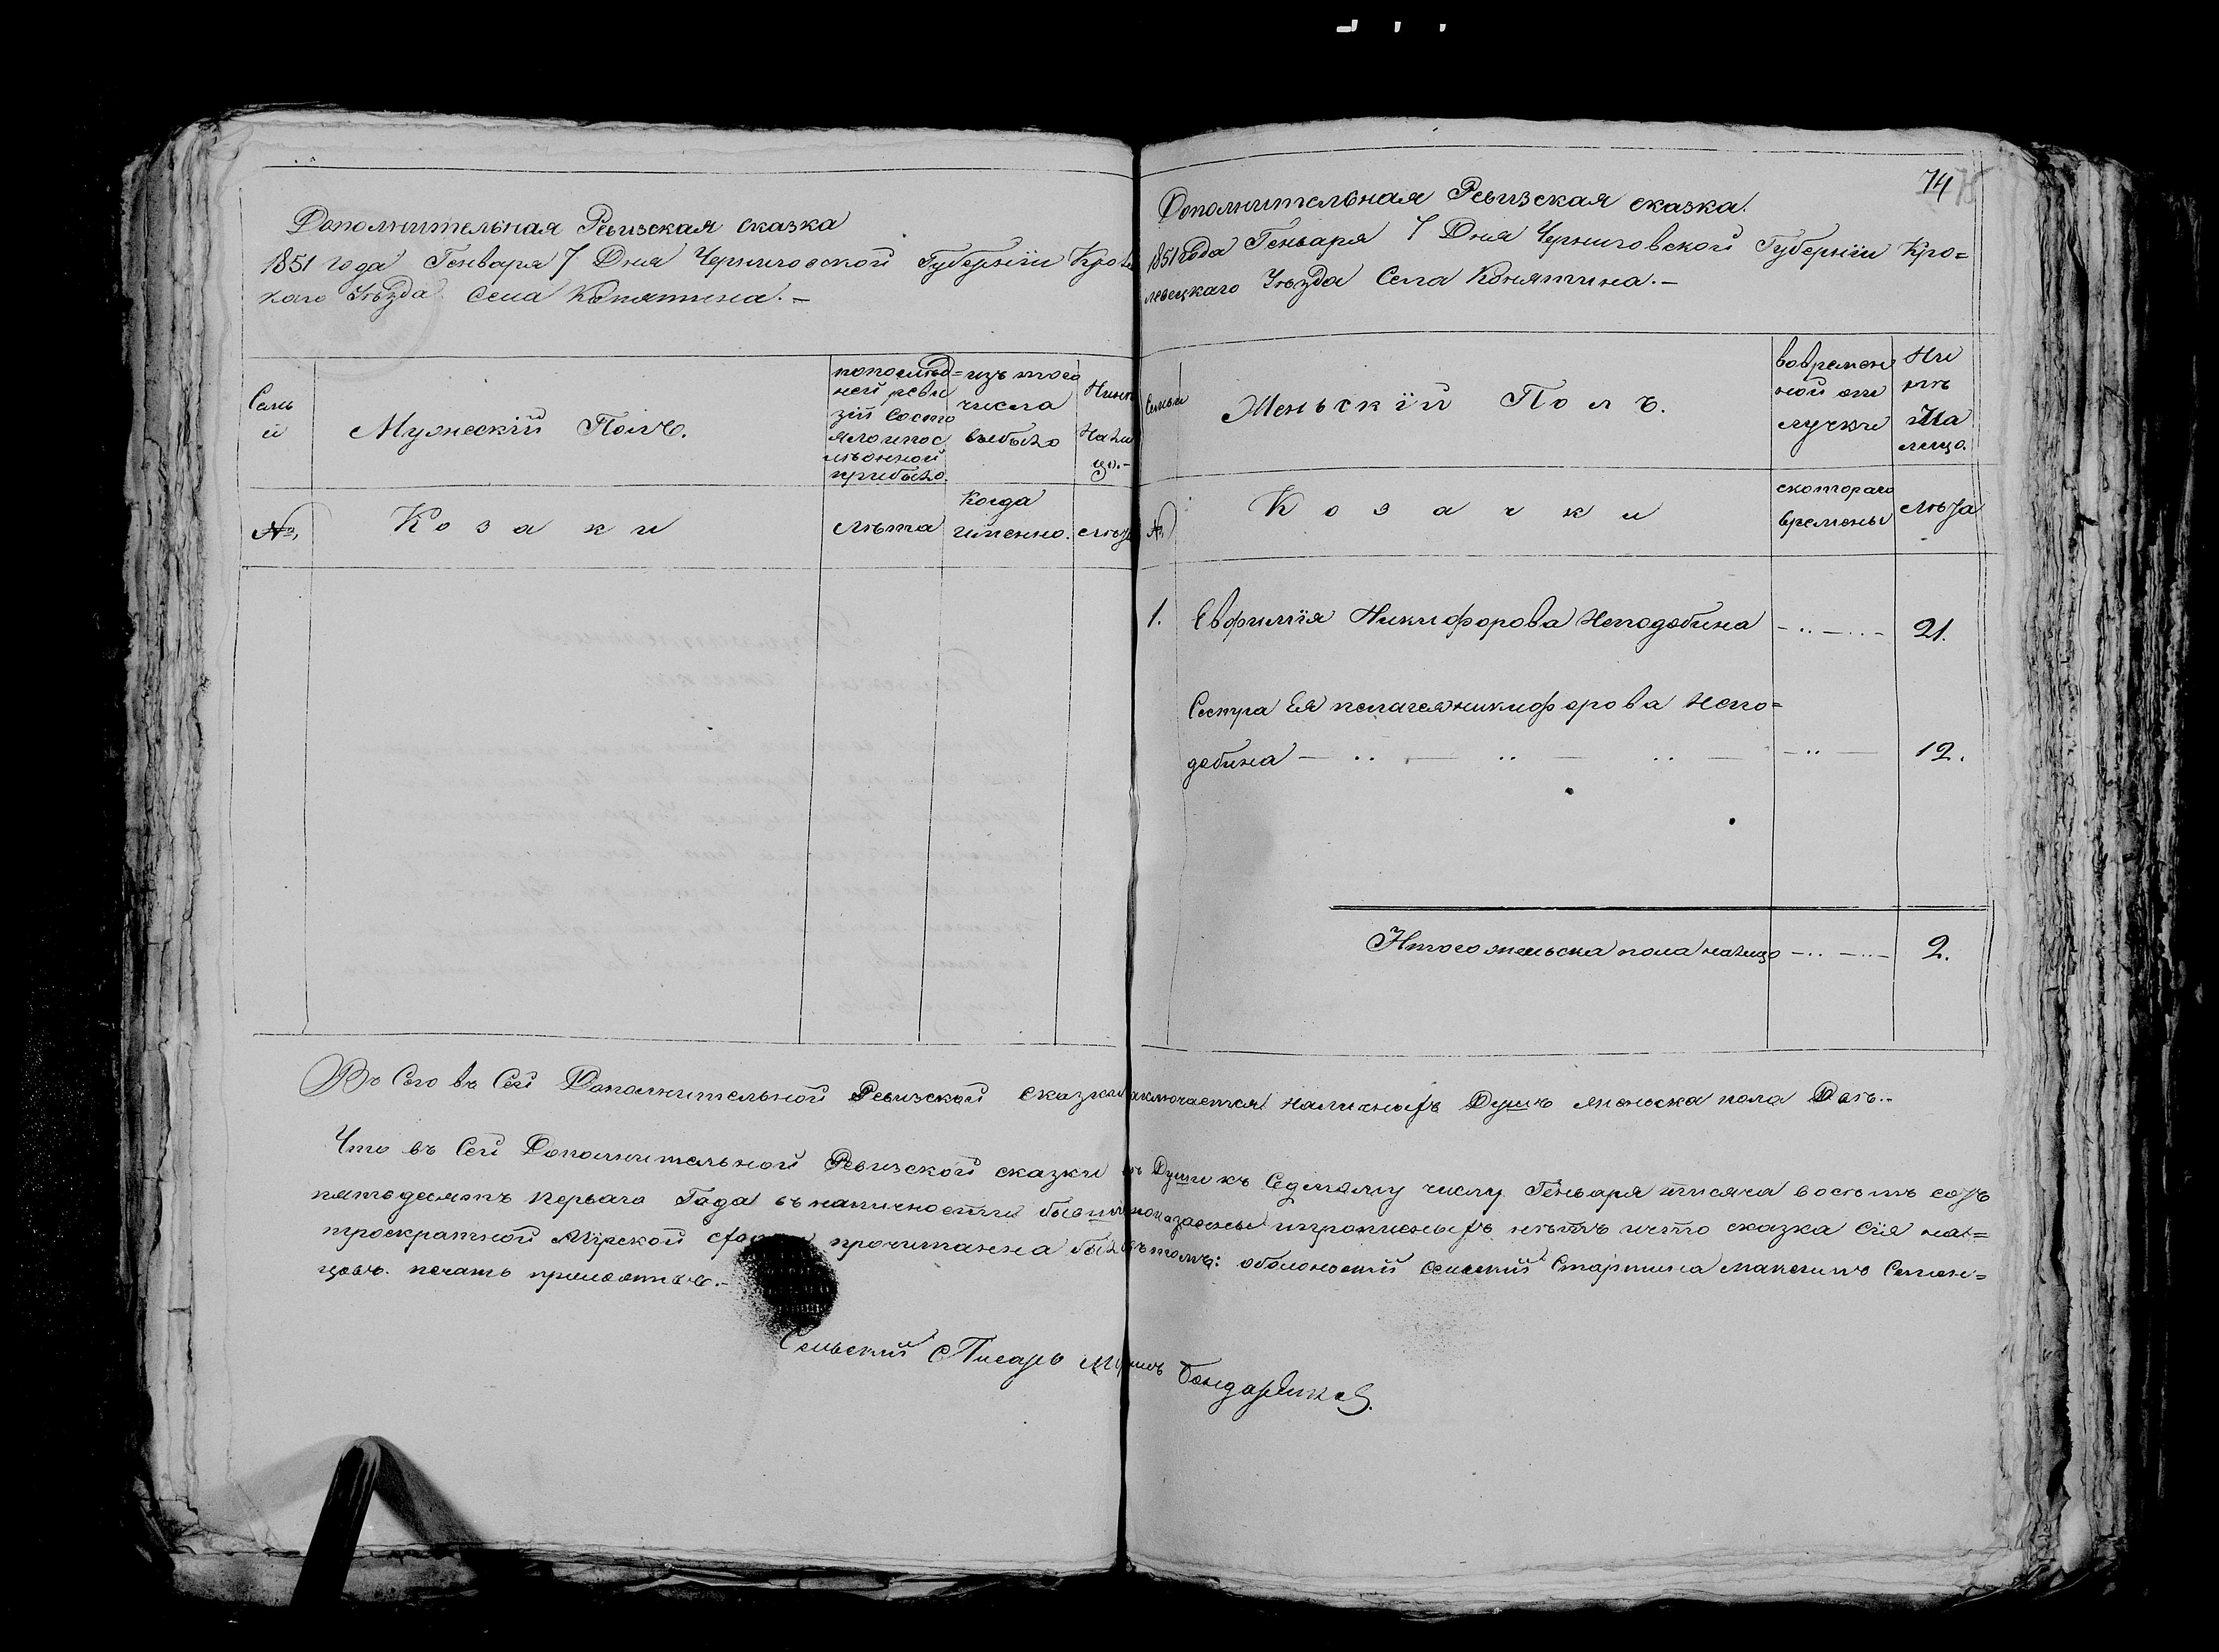 Дополнительная Ревизская сказка
1851 года Генваря 7 Дня Черниговской Губернїи
каго Уѣзда Села Конятина.–
Семь
и
Мужескїй Полъ.
попослѣд=
ней реви
зїи состо
яло ипос
лѣонной
прибыло.
изъ того
числа
выбыло
Нинѣ
Нали
цо.–
№
Козаки
лѣта
Когда
именно.
74
Дополнительная Ревизская сказка.
1851 года Генваря 7 Дня Черниговской Губернїи Кро=
левецкаго Уѣзда Села Конятина.–
Семьи
Женьскїй Полъ.
вовремен
ной от
лучки
Ни
нѣ
На
лицо.
№
Козачки
скотораго
времены
лѣта
1. Евфимїя Никифорова Неподобина 21.
Сестра Ея пелагея никифорова Непо=
добина 12.
Итого женьска пола налицо 2.
Въ Сего въ Сей Дополнительной Ревизской сказки заключается наличныхъ Душъ женьска пола Двѣ.–
Что въ Сей Дополнительной Ревизской сказки Души къ Седмому числу Генваря тисяча восѣмъ сотъ
пятьдесятъ перваго Года въ наличности показаны ипрописныхъ нѣтъ ичто сказка сїя на=
троекратной Мїрской прочитанна въ томъ: оболонский Сельский Старшина максимъ Семен=
цовъ. печать приложилъ.–
Сельский Писарь Бондаренко.